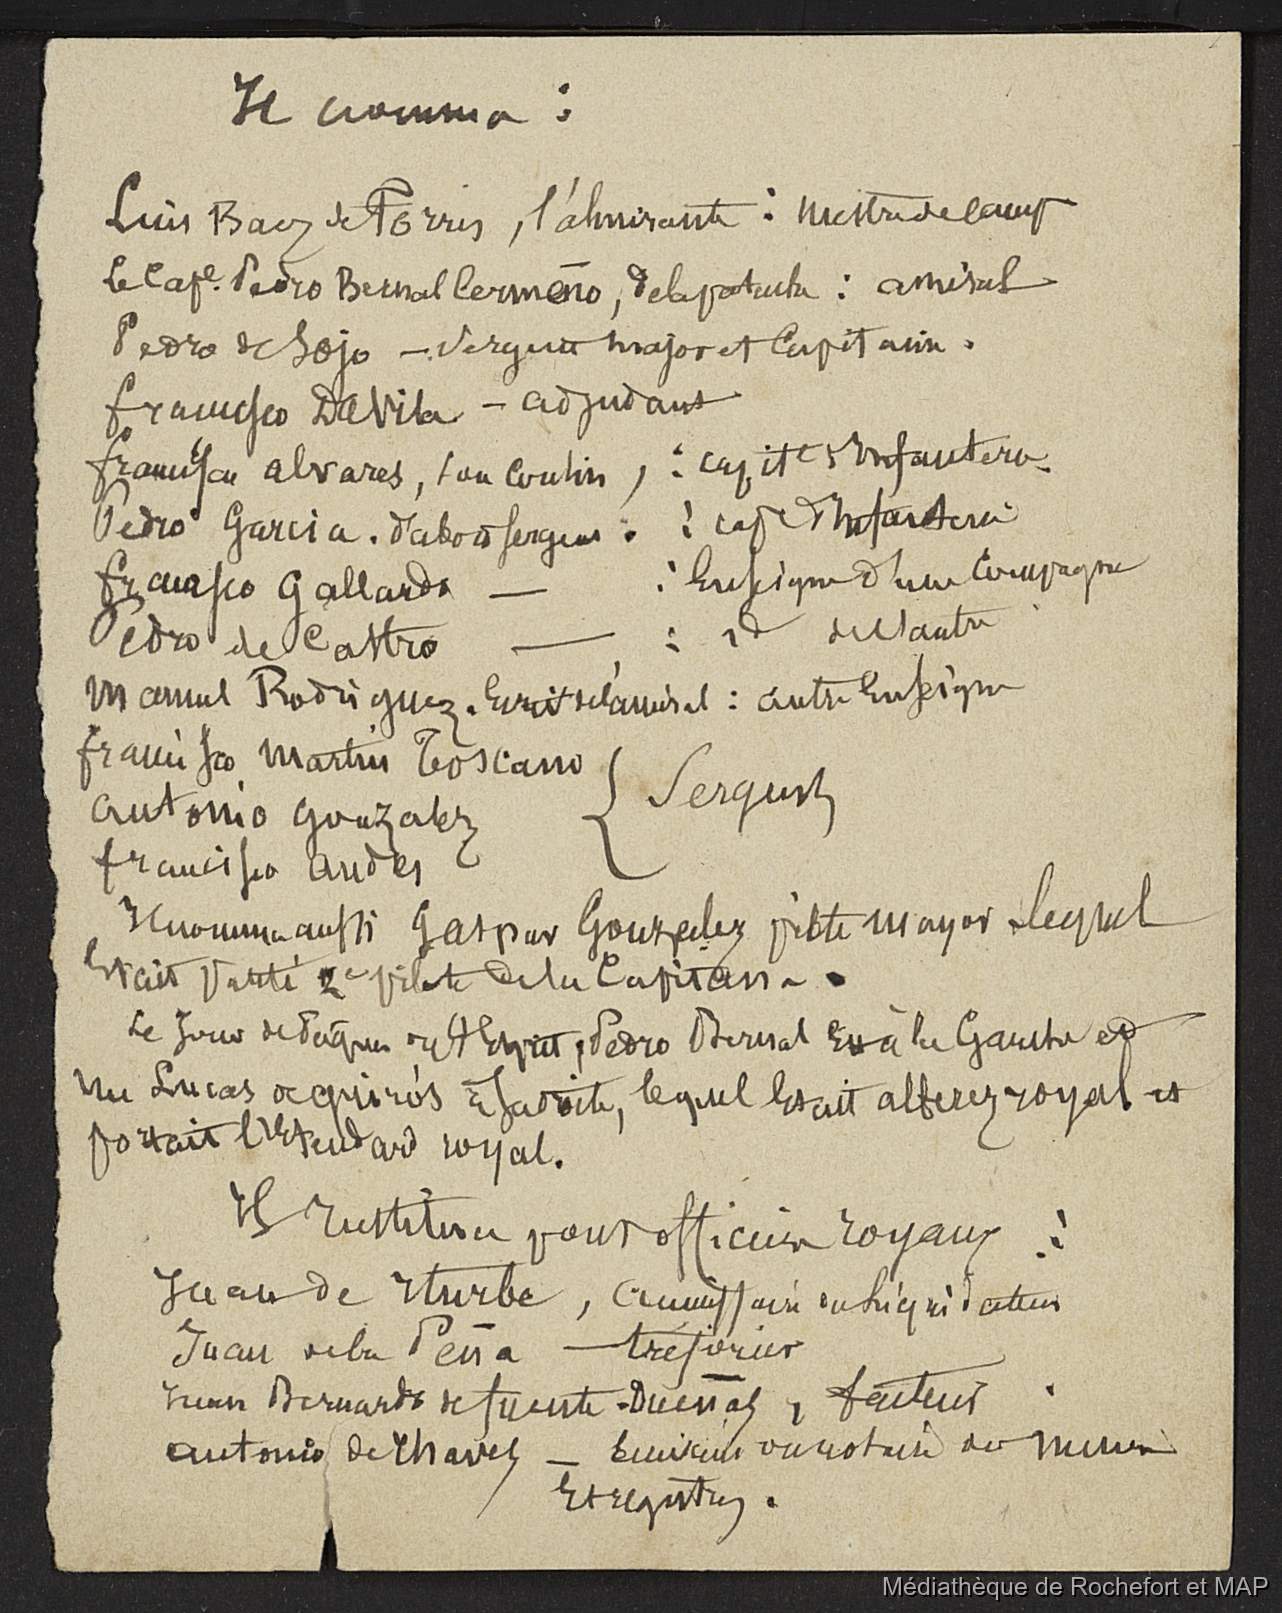 Il nomma :
Luis Baez de Torrès, l'almirante : mestre de camp
Le Cape. Pedro Bernal Cermeño, de la patache : amiral
Pedro de Sojo — sergent major et Capitaine.
francisco Davila — adjudant
francisco alvares, son cousin, : capite d'Infanterie
Pedro Garcia. d'abord sergent. : cape d'Infanterie
francisco Gallardo — : Enseigne d'une Compagnie
Pedro de Castro — : id de l'autre
manuel Rodriguez. Ecrit de l'amiral : autre Enseigne
francisco Martin Toscano
antonio Gonzalez } Sergents
francisco andes
Il nomma aussi Gaspar Gonzalez pilote mayor lequel
Etait parti 2e pilote de la Capitana.
Le Jour de Pâques Pedro Bernal à la Gauche et
Lucas de quirós à sa droite, lequel Etait alferez royal et
portait l'Etendard royal.
Il restitua pour officiers royaux :
Juan de Iturbe, commissaire ou liquidateur
Juan de la Peña — trésorier
Juan Bernardo de fuente-Dueñas, facteur
antonio de Chaves — Ecrivain ou notaire des Mines
Et registres.
Médiathèque de Rochefort et MAP